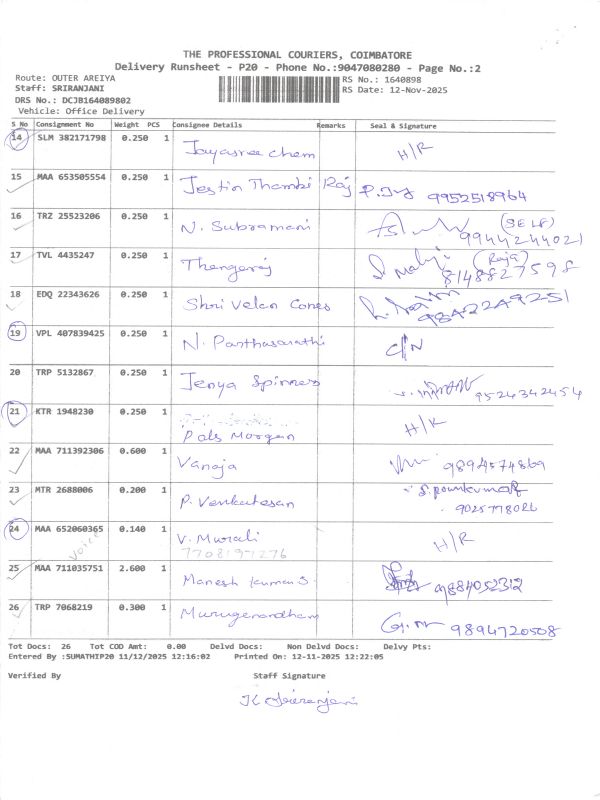 THE PROFESSIONAL COURIERS, COIMBATORE
Delivery Runsheet - P20 - Phone No.:9047080280 - Page No.:2
Route: OUTER AREIYA RS No.: 1640898
Staff: SRIRANJANI RS Date: 12-Nov-2025
DRS No.: DCJB164089802
Vehicle: Office Delivery
S No Consignment No Weight PCS Consignee Details Remarks Seal & Signature
14 SLM 382171798 0.250 1 Jayasree chem H/R
15 MAA 653505554 0.250 1 Jestin Thambi Raj 9952518964
16 TRZ 25523206 0.250 1 N. Subramani (SELF) 9944244021
17 TVL 4435247 0.250 1 Thangaraj (Raja) 8148827598
18 EDQ 22343626 0.250 1 Shri Velan Cones 9842249251
19 VPL 407839425 0.250 1 N. Parthasarathi C/N
20 TRP 5132867 0.250 1 Jenya Spinners 9524342454
21 KTR 1948230 0.250 1 Pals Moorgan H/R
22 MAA 711392306 0.600 1 Vanaja 9894574869
23 MTR 2688006 0.200 1 P. Venkatesan S. ponnkumar 9025778026
24 MAA 652060365 0.140 1 V. Murali H/R
7708197276
Voice
25 MAA 711035751 2.600 1 Manesh kumar S. 9884052312
26 TRP 7068219 0.300 1 9894720508
Tot Docs: 26 Tot COD Amt: 0.00 Delvd Docs: Non Delvd Docs: Delvy Pts:
Entered By :SUMATHIP20 11/12/2025 12:16:02 Printed On: 12-11-2025 12:22:05
Verified By Staff Signature
K Sriranjani